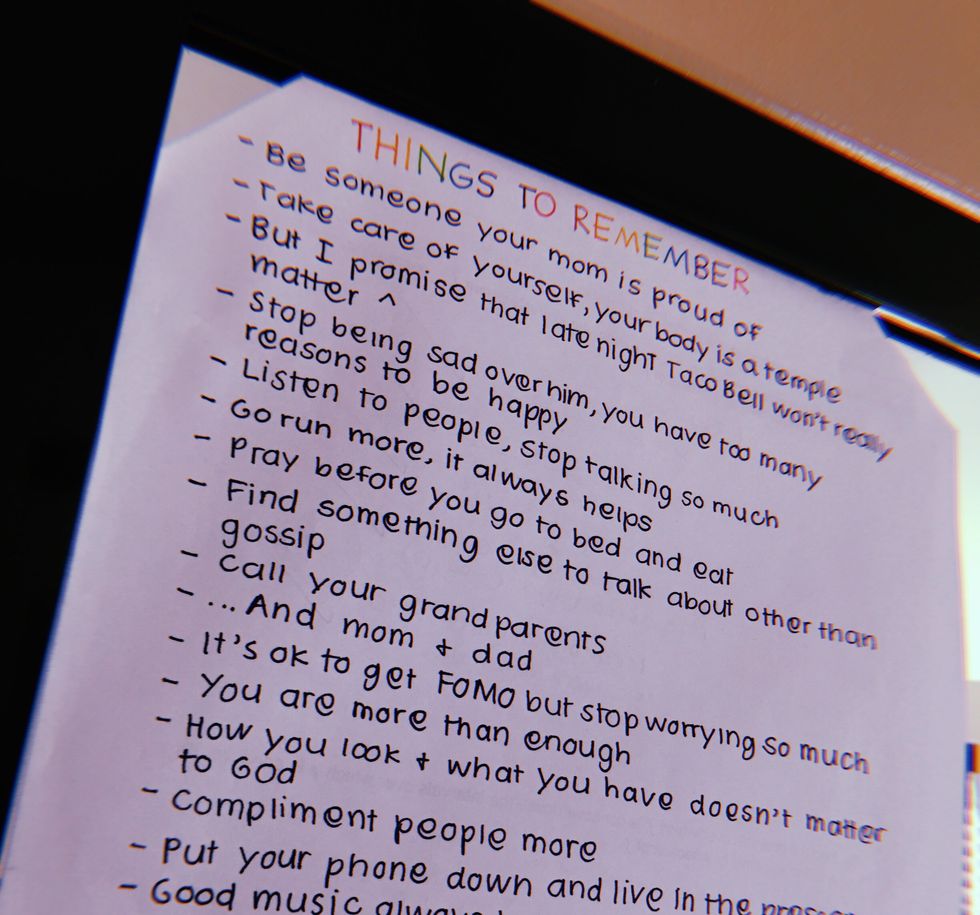 THINGS TO REMEMBER
- Be someone your mom is proud of
- Take care of yourself, your body is a temple
- But I promise that late night Taco Bell won't really
matter ^
- Stop being sad over him, you have too many
reasons to be happy
- Listen to people, stop talking so much
- Go run more, it always helps
- Pray before you go to bed and eat
- Find something else to talk about other than
gossip
- Call your grandparents
- ...And mom & dad
- It's ok to get FOMO but stop worrying so much
- You are more than enough
- How you look & what you have doesn't matter
to God
- Compliment people more
- Put your phone down and live in the
- Good music always